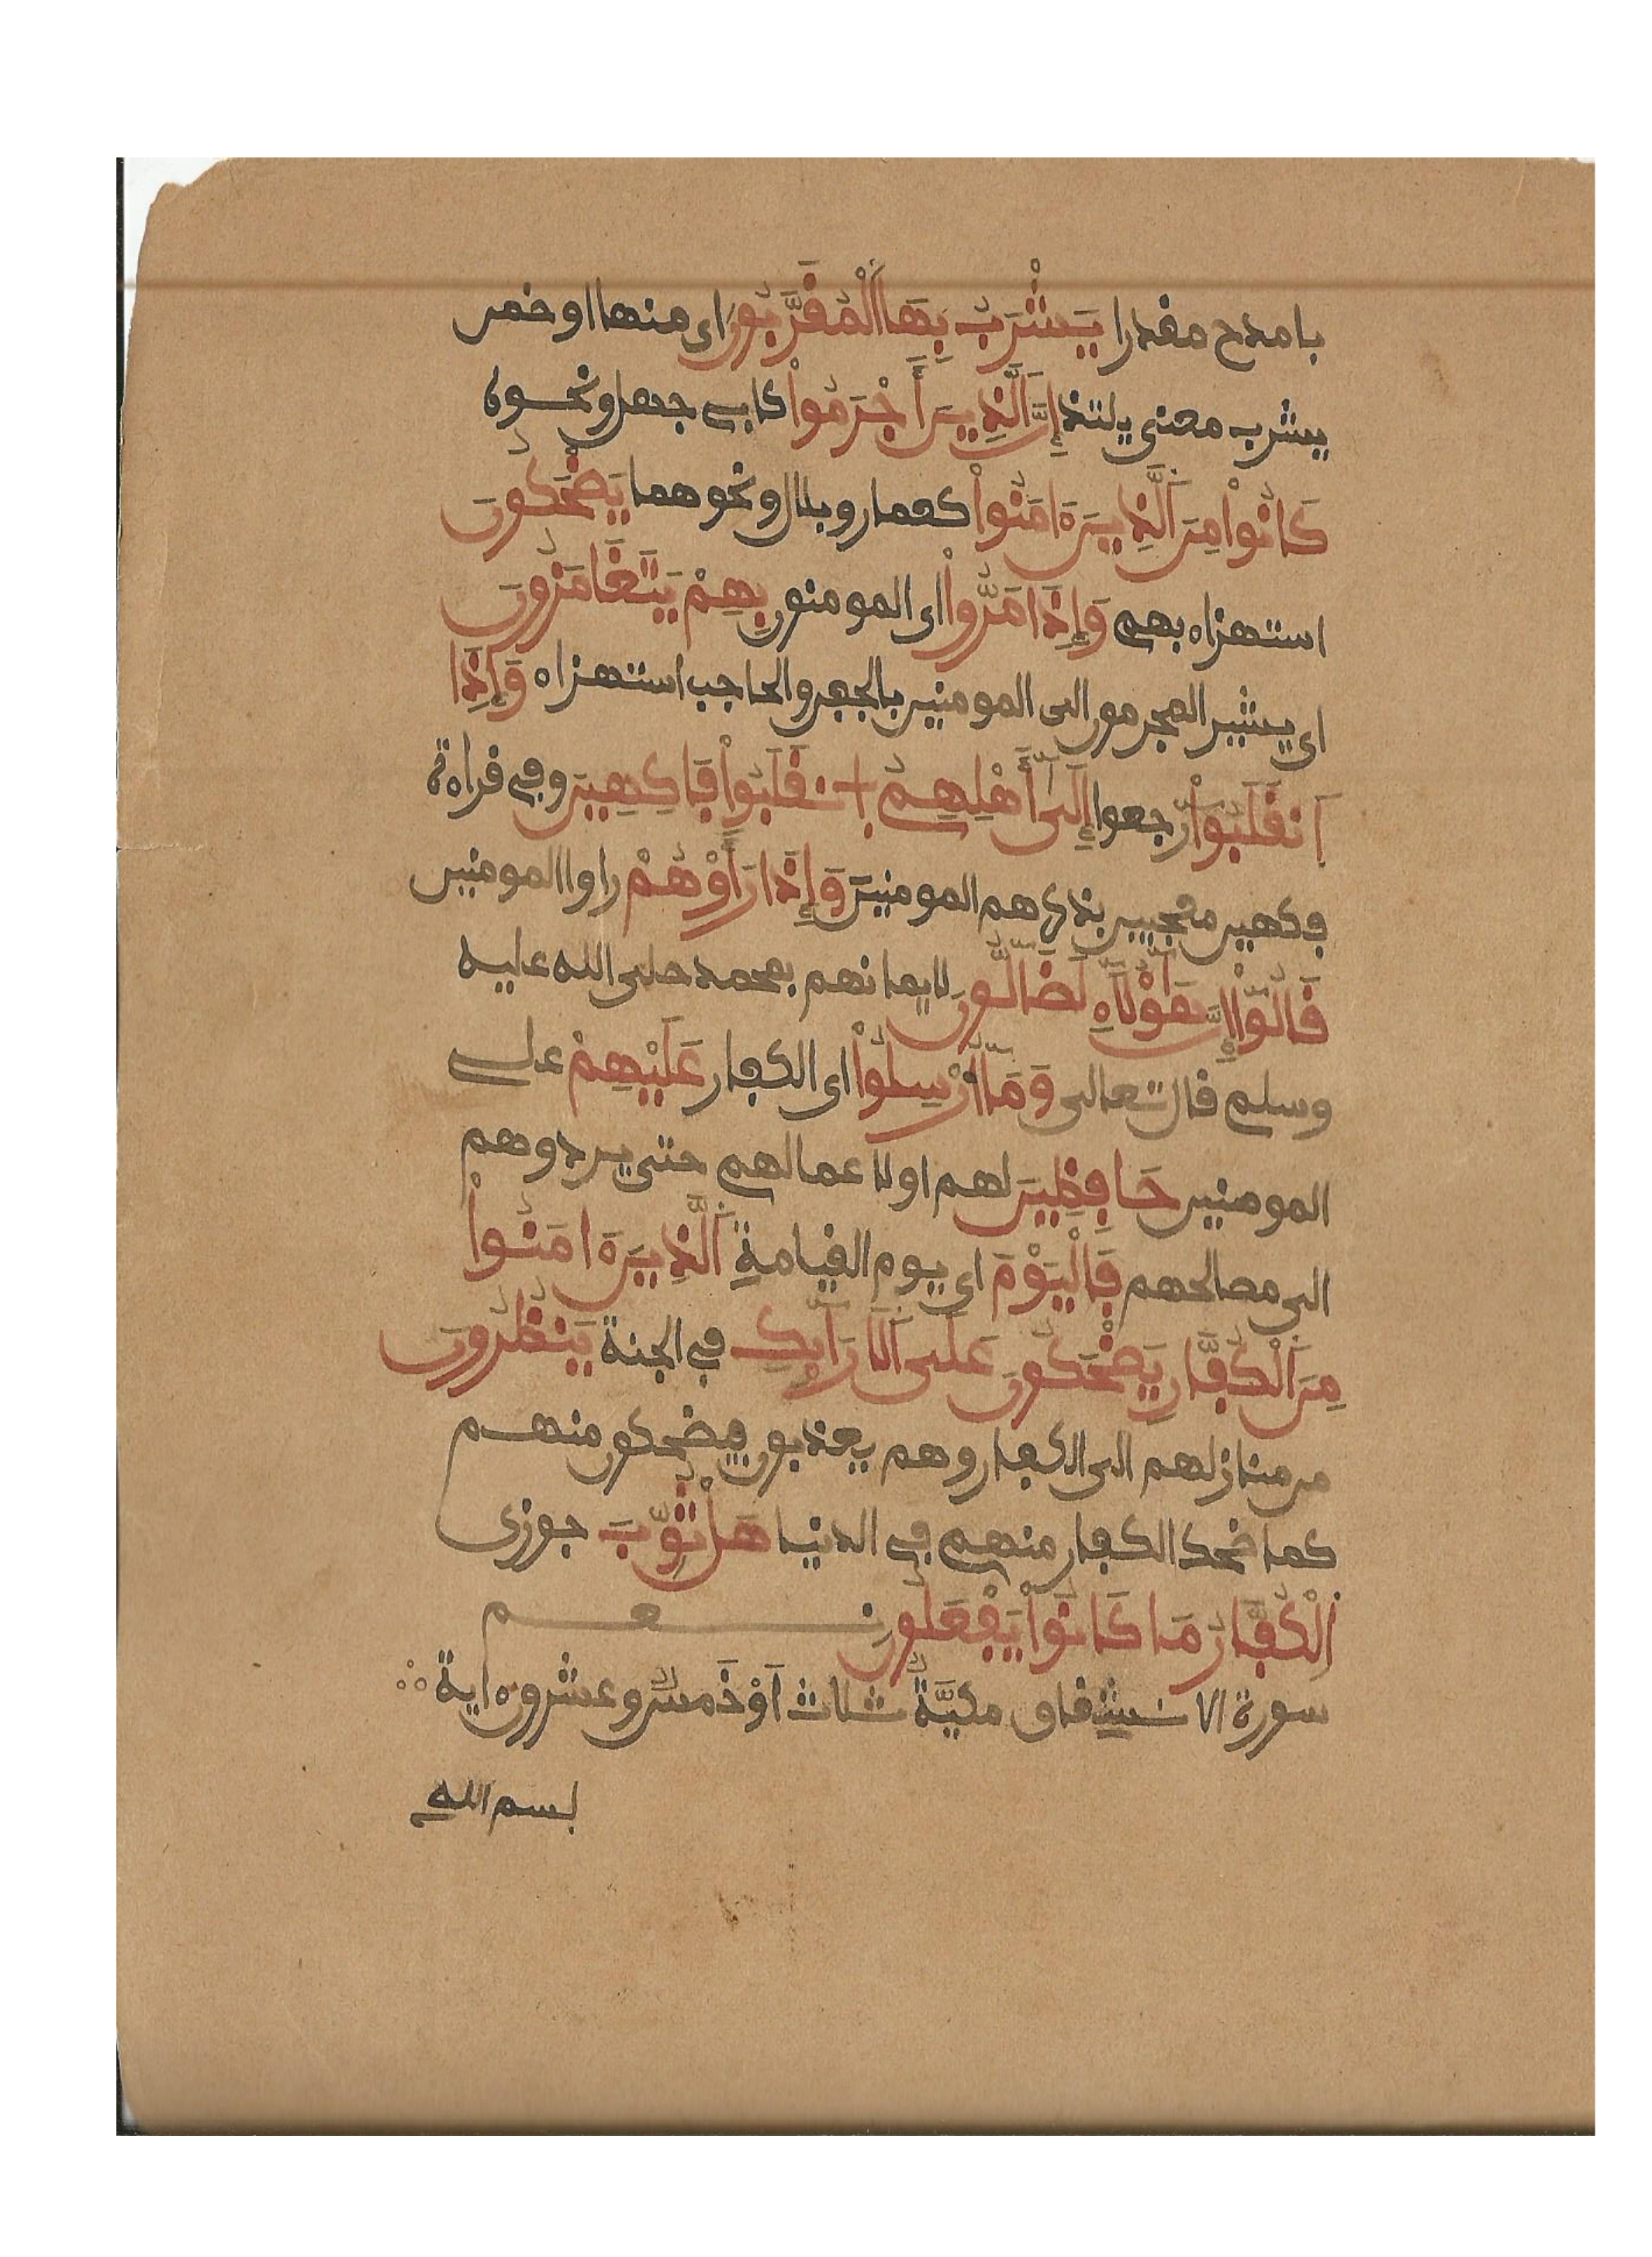 بامدح مفدرا يَشْرَبُ بِهَا اَلْمُفَرَّبُونَ اى منها او ضمن
يشرب معنى يلتذ إِنَّ اَلذِينَ أَجْرَمُواْ كابے جهل ونحوه
كَانُواْ مِنَ اَلذِينَ ءَامَنُواْ كعمار وبلال ونحوهما يَضْحَكُونَ
استهزاء بهم وَإِذَا مَرُّواْ اى المومنون بِهِمْ يَتَغَامَزُونَ
اى يشير المجرمون الى المومنين بالجفن والحاجب استهزاء وَإِذَا
اَنفَلَبُواْ رجعوا إِلَىٰ أَهْلِهِمُ اُ نفَلَبُواْ فَاكِهِينَ وفى فراءة
فكهين معجبين بذكرهم المومنين وَإِذَا رَأَوْهُمْ راوا المومنين
فَالُوٓاْ إِنَّ هَٰٓؤُلَآءِ لَضَآلُّونَ لايمانهم بمحمد صلى الله عليه
وسلم فال تعالى وَمَآ أُرْسِلُواْ اى الكفار عَلَيْهِمْ علے
المومنين حَافِظِينَ لهم او لاعمالهم حتى يردوهم
الى مصالحهم فَالْيَوْمَ اى يوم الفيامة اَلذِينَ ءَامَنُواْ
مِنَ اَلْكُفَّارِ يَضْحَكُونَ عَلَى اَلَارَآئِكِ فى الجنة يَنظُرُونَ
من منازلهم الى الكفار وهم يعذبون فيضحكون منهم
كما ضحك الكفار منهم فى الدنيا هَلْ ثُوِّبَ جوزى
اَلْكُفَّارُ مَا كَانُواْ يَفْعَلُونَ نعم
سورة الانشفاق مكيَّةٌ ثلاث أَوْ خَمسٌ وعشرون ءاية
بسم الله